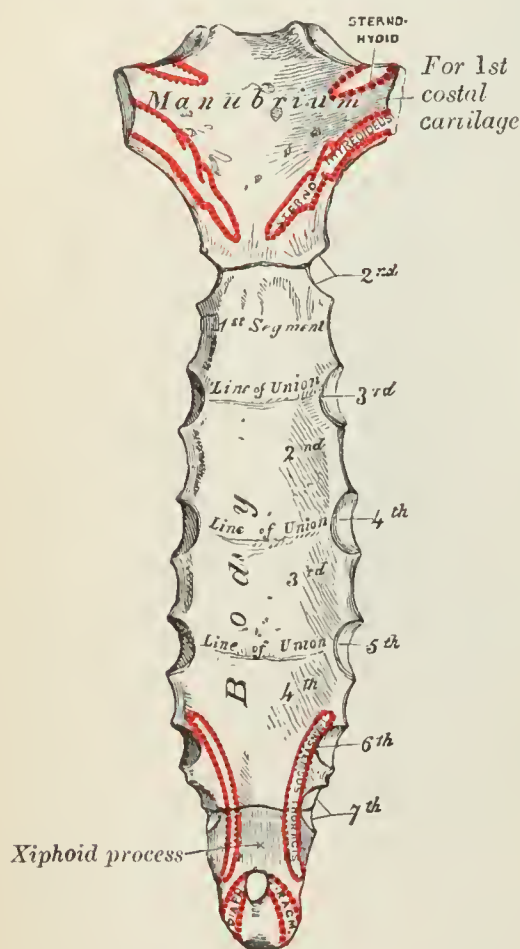 STERNO-
HYOID
For 1st
costal
cartilage
Manubrium
STERNO-THYREOIDEUS
2nd
1st Segment
Line of Union
3rd
2nd
Line of Union
4th
3rd
Line of Union
5th
Body
4th
6th
TRANSVERSUS THORACIS
7th
Xiphoid process
DIAPH
RAGM.